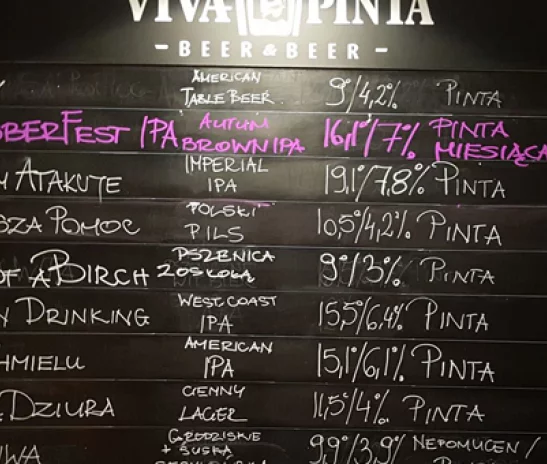 VIVA PINTA
- BEER & BEER -
AMERICAN TABLE BEER 9°/4,2% PINTA
BERFEST IPA AUTUM BROWN IPA 16,1°/7% PINTA MIESIĄCA
ATAKUTE IMPERIAL IPA 19,1°/7,8% PINTA
SZA POMOC POLSKI PILS 10,5°/4,2% PINTA
OF A BIRCH PSZENICA Z OSKOŁĄ 9°/3% PINTA
N DRINKING WEST COAST IPA 15,5°/6,4% PINTA
HMIELU AMERICAN IPA 15,1°/6,1% PINTA
DZIURA CIEMNY LAGER 11,5°/4% PINTA
IWA GRODZISKIE + SUSKA 9,9°/3,9% NEPOMUCEN /